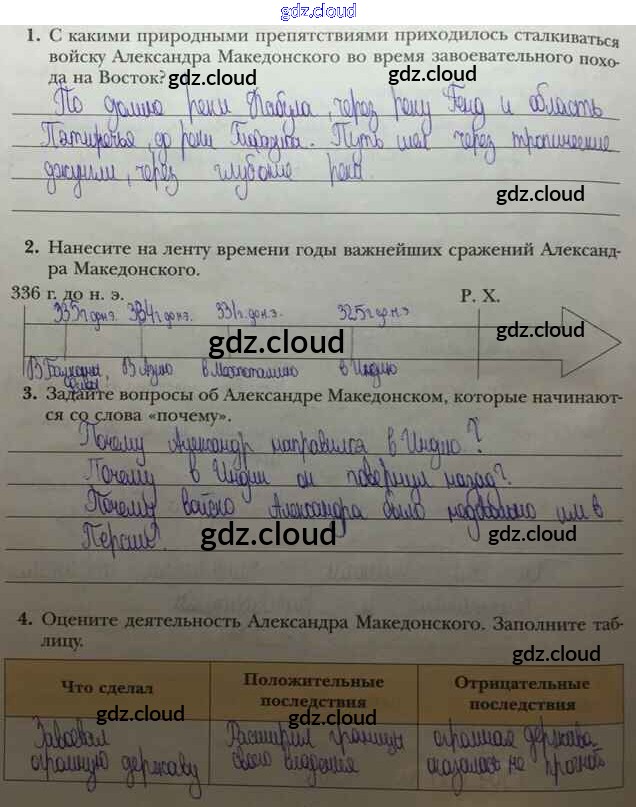 gdz.cloud
1. С какими природными препятствиями приходилось сталкиваться
войску Александра Македонского во время завоевательного похо-
да на Восток?
gdz.cloud
По долине реки Кабула, через реку Генд и область
Пятиречья, до реки Гифазиса. Путь шел через тропические
джунгли, через глубокие реки
gdz.cloud
2. Нанесите на ленту времени годы важнейших сражений Александ-
ра Македонского.
336 г. до н. э.
Р. Х.
335г до н.э. 334г до н.э. 331г. до н.э. 325г до н.э.
gdz.cloud
gdz.cloud
В Балканы, В Азию в Месопотамию в Индию
Фивы
3. Задайте вопросы об Александре Македонском, которые начинают-
ся со слова «почему».
Почему Александр направился в Индию?
Почему в Индии он повернул назад?
Почему войско Александра было недовольно им в
Персии?
gdz.cloud
gdz.cloud
4. Оцените деятельность Александра Македонского. Заполните таб-
лицу.
gdz.cloud
Что сделал
Положительные
последствия
Отрицательные
последствия
gdz.cloud
gdz.cloud
gdz.cloud
Завоевал
огромную державу
Расширил границы
своего владения
огромная держава
оказалась не прочной